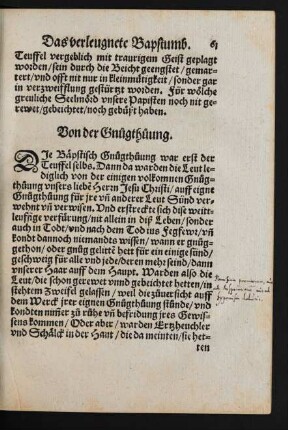 Das verleugnete Bapstumb. 61
Teuffel vergeblich mit traurigem Geist geplagt
worden/ sein durch die Beicht geengstet/ gemar-
tert/ vnd offt nit nur in kleinmütigkeit/ sonder gar
in verzweifflung gestürtzt worden. Für wölche
greuliche Seelmörd vnsere Papisten noch nit ge-
rewet/ gebeichtet/ noch gebüßt haben.
Von der Gnügthüung.
DJe Bäpstisch Gnügthüung war erst der
Teuffel selbs. Dann da warden die Leut le-
diglich von der einigen volkomnen Gnüg-
thüung vnsers liebe Herrn Jesu Christi/ auff eigne
Gnügthüung für jre vnd anderer Leut Sünd ver-
wehnt vnd verwisen. Vnd erstreckt sich dise weitt-
leuffige verfürung/ nit allein in diß Leben/ sonder
auch in Todt/ vnd nach dem Tod ins Fegfewr/ vnd
kondt dannoch niemandts wissen/ wann er gnüg-
gethon/ oder gnüg gelitten hett für ein einige sünd/
geschweig für alle vnd jede/ deren mehr seind/ dann
vnserer Haar auff dem Haupt. Warden also die
Leut/ die schon gerewt vnnd gebeichtet hetten/ in
stehtem Zweifel gelassen/ weil die züuersicht auff
dem Werck jrer eignen Gnügthüung stünde/ vnd
kondten nimer zu rühe vnd befridung jres Gewis-
sens kommen/ Oder aber/ warden Ertzheuchler
vnd Schälck in der Haut/ die da meinten/ sie het-
ten